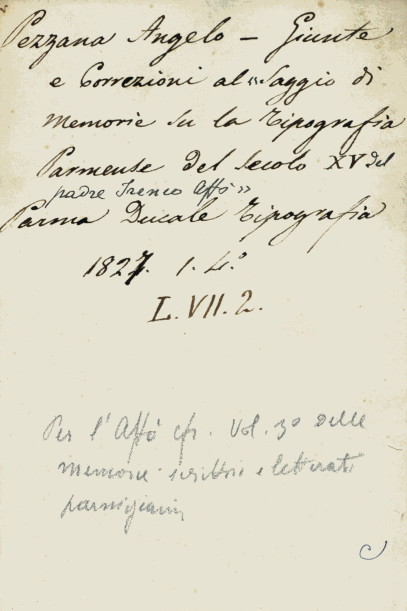 Pezzana Angelo – Giunte
e Correzioni al «Saggio di
memorie su la Tipografia
Parmense del secolo XV del
padre Ireneo Affò»
Parma Ducale Tipografia
1827. 1. 4.°
L. VII. 2.
Per l'Affò cfr. Vol. 3° delle
memorie scrittori e letterati
parmigiani